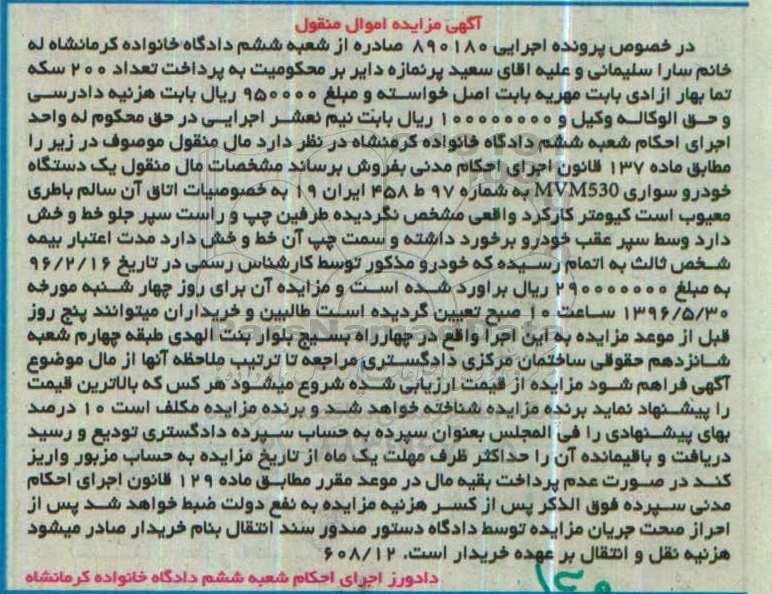 آگهی مزایده اموال منقول
در خصوص پرونده اجرایی ۸۹۰۱۸۰ صادره از شعبه ششم دادگاه خانواده کرمانشاه له
خانم سارا سلیمانی و علیه اقای سعید پرنمازه دایر بر محکومیت به پرداخت تعداد ۲۰۰ سکه
تما بهار ازادی بابت مهریه بابت اصل خواسته و مبلغ ۹۵۰۰۰۰ ریال بابت هزینه دادرسی
و حق الوکاله وکیل و ۱۰۰۰۰۰۰۰۰ ریال بابت نیم نعشر اجرایی در حق محکوم له واحد
اجرای احکام شعبه ششم دادگاه خانواده کرمنشاه در نظر دارد مال منقول موصوف در زیر را
مطابق ماده ۱۳۷ قانون اجرای احکام مدنی بفروش برساند مشخصات مال منقول یک دستگاه
خودرو سواری MVM530 به شماره ۹۷ ط ۴۵۸ ایران ۱۹ به خصوصیات اتاق آن سالم باطری
معیوب است کیومتر کارکرد واقعی مشخص نگردیده طرفین چپ و راست سپر جلو خط و خش
دارد وسط سپر عقب خودرو برخورد داشته و سمت چپ آن خط و خش دارد مدت اعتبار بیمه
شخص ثالث به اتمام رسیده که خودرو مذکور توسط کارشناس رسمی در تاریخ ۹۶/۲/۱۶
به مبلغ ۲۹۰۰۰۰۰۰۰ ریال براورد شده است و مزایده آن برای روز چهار شنبه مورخه
۱۳۹۶/۵/۳۰ ساعت ۱۰ صبح تعیین گردیده است طالبین و خریداران میتوانند پنج روز
قبل از موعد مزایده به این اجرا واقع در چهارراه بسیج بلوار بنت الهدی طبقه چهارم شعبه
شانزدهم حقوقی ساختمان مرکزی دادگستری مراجعه تا ترتیب ملاحظه آنها از مال موضوع
آگهی فراهم شود مزایده از قیمت ارزیابی شده شروع میشود هر کس که بالاترین قیمت
را پیشنهاد نماید برنده مزایده شناخته خواهد شد و برنده مزایده مکلف است ۱۰ درصد
بهای پیشنهادی را فی المجلس بعنوان سپرده به حساب سپرده دادگستری تودیع و رسید
دریافت و باقیمانده آن را حداکثر ظرف مهلت یک ماه از تاریخ مزایده به حساب مزبور واریز
کند در صورت عدم پرداخت بقیه مال در موعد مقرر مطابق ماده ۱۲۹ قانون اجرای احکام
مدنی سپرده فوق الذکر پس از کسر هزینه مزایده به نفع دولت ضبط خواهد شد پس از
احراز صحت جریان مزایده توسط دادگاه دستور صدور سند انتقال بنام خریدار صادر میشود
هزینه نقل و انتقال بر عهده خریدار است. ۶۰۸/۱۲
دادورز اجرای احکام شعبه ششم دادگاه خانواده کرمانشاه
ParsNamadData